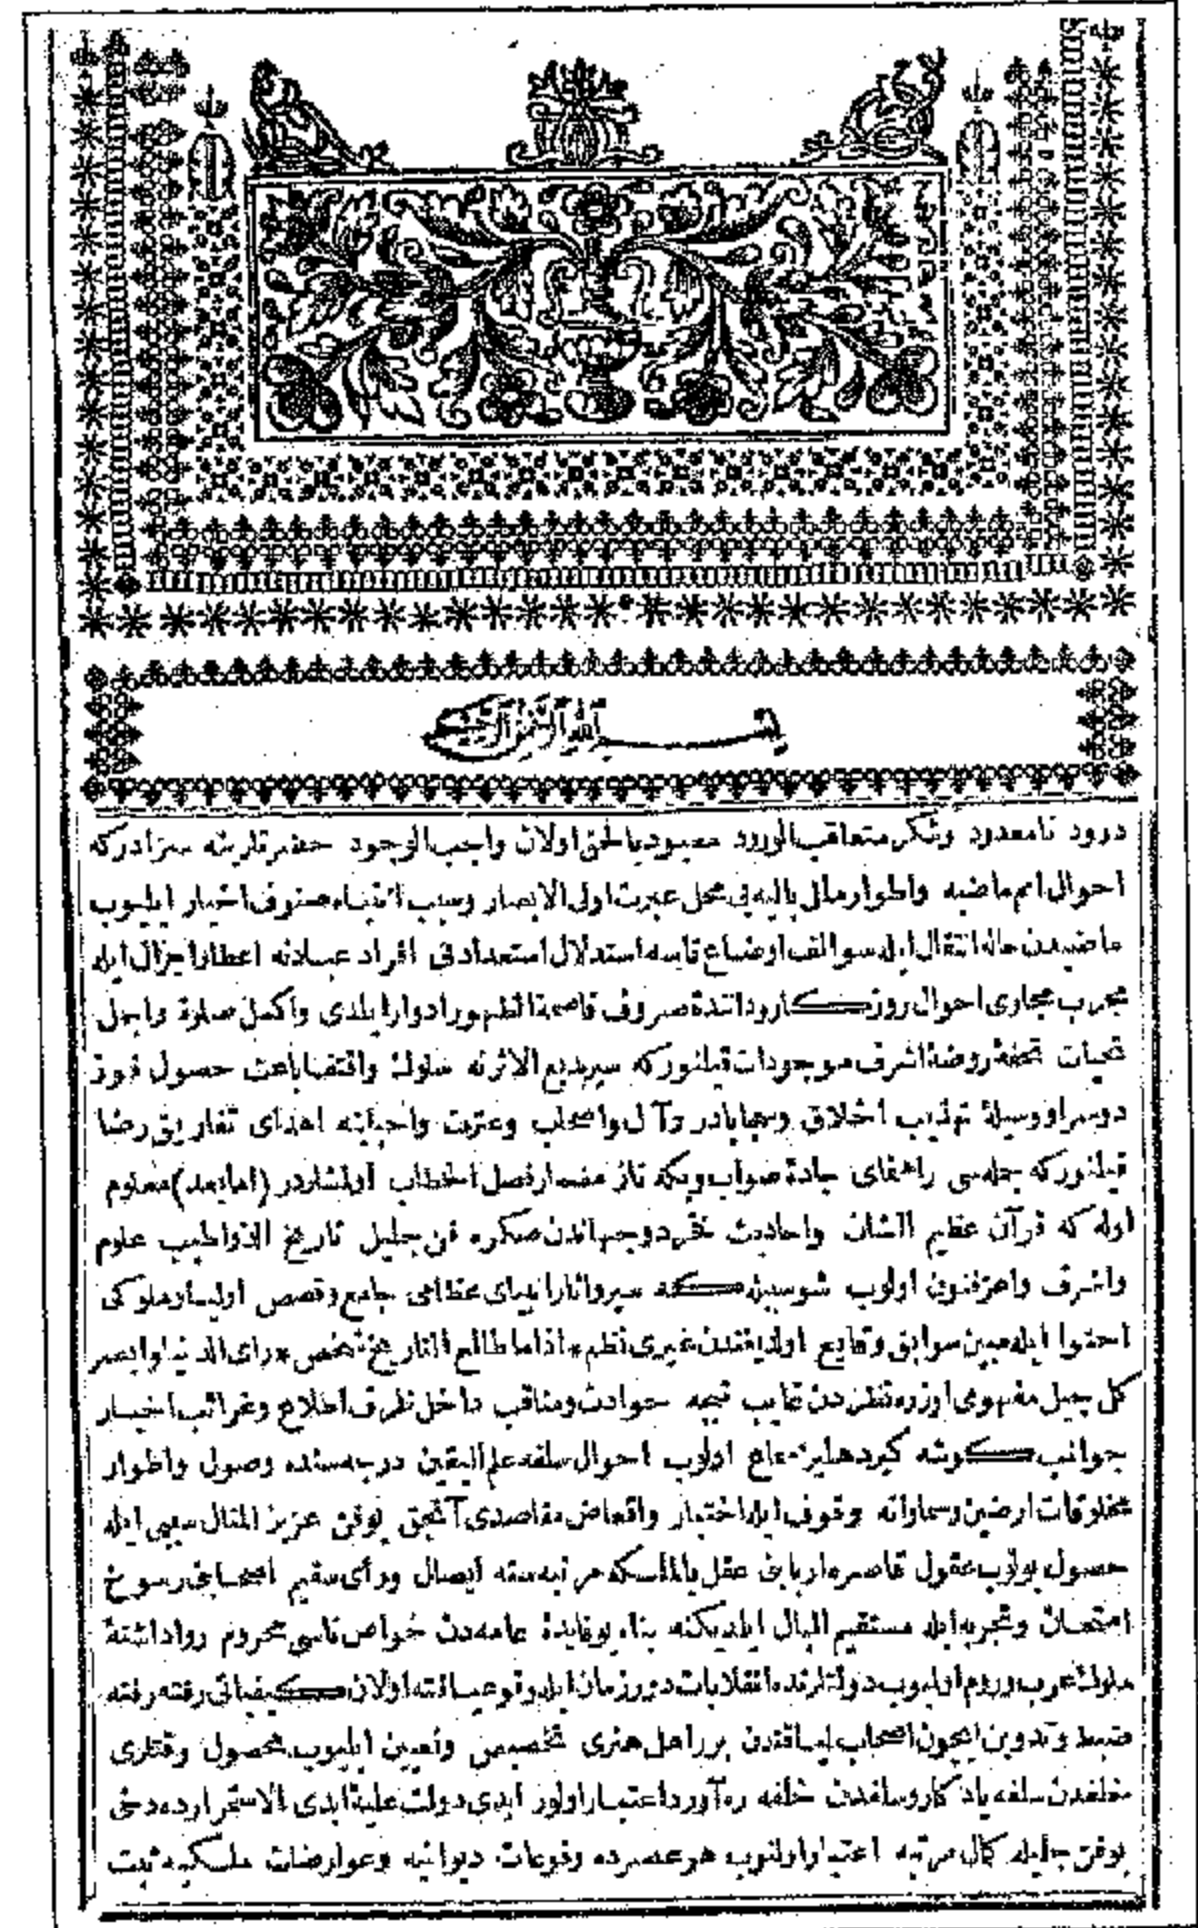 بسم الله الرحمن الرحيم
درود نامعدود وشكر متعاقب الورود معبود بالحق اولان واجب الوجود حضرتلرينه سزادركه
احوال امم ماضيه واطوار ملل باليه يى محل عبرت اولى الابصار وسبب انتباه صنوف اخيار ايليوب
ماضيدن حاله انتقال ايله سوالف اوضاع ناسه استدلال استعدادنى افراد عبادنه اعطا واجزال ايله
مجرب مجارى احوال روزكار وداننده صروف قاصمة الظهور ادوار ايلدى واكمل صلوة واجمل
تحيات تحفه روضه اشرف موجودات قيلنور كه سير بديع الاثرنه سلوك واقتفا باعث حصول فوز
دوسرا ووسيله تهذيب اخلاق وسجايادر وآل واصحاب وعترت واحبابنه اهداى تفاريق رضا
قيلنور كه جمله سى راهنماى جاده صواب ويكه تاز مضمار فصل الخطاب اولمشلردر (اما بعد) معلوم
اوله كه قرآن عظيم الشان واحاديث فخر دو جهاندن صكره فن جليل تاريخ الذ واطيب علوم
واشرف واعز فنون اولوب شو سببله كه سير وآثار انبياى عظامى جامع وقصص اوليا وملوكى
احتوا ايله مبين سوابق وقايع اولديغندن غيرى نظم * اذا ما طالع التاريخ شخص * راى الدنيا وابصر
كل جيل مفهومى اوزره نظردن غايب نيجه حوادث ومناقب داخل ظرف اطلاع وغرائب اخبار
جوانب كوشه كير دهليز سماع اولوب احوال سلفه علم اليقين درجه سنده وصول واطوار
مخلوقات ارضين وسماواته وقوف ايله اختبار واتعاظ مقاصدى آنجق بو فن عزيز المنال سببى ايله
حصول بولوب عقول قاصره اربابنى عقل بالملكه مرتبه سنه ايصال ورأى سقيم اصحابنى رسوخ
امتحان وتجربه ايله مستقيم البال ايلديكنه بناء بو فايده عامه دن خواص ناسى محروم روا داشته
ملوك عرب وروم اولميوب دولتلرنده انقلابات دور زمان ايله وقوعيافته اولان كيفياتى رفته رفته
ضبط وتدوين ايچون اصحاب لياقتدن برر اهل هنرى تخصيص وتعيين ايليوب محصول وقتلرى
خلفدن سلفه يادكار وسلفدن خلفه ره آورد اعتبار اولور ابدى دولت عليه ابدى الاستمرارده دخى
بو فن جليله كمال مرتبه اعتبار اولنوب هر عصرده وقوعات ديوانيه وعوارضات ملكيه ثبت